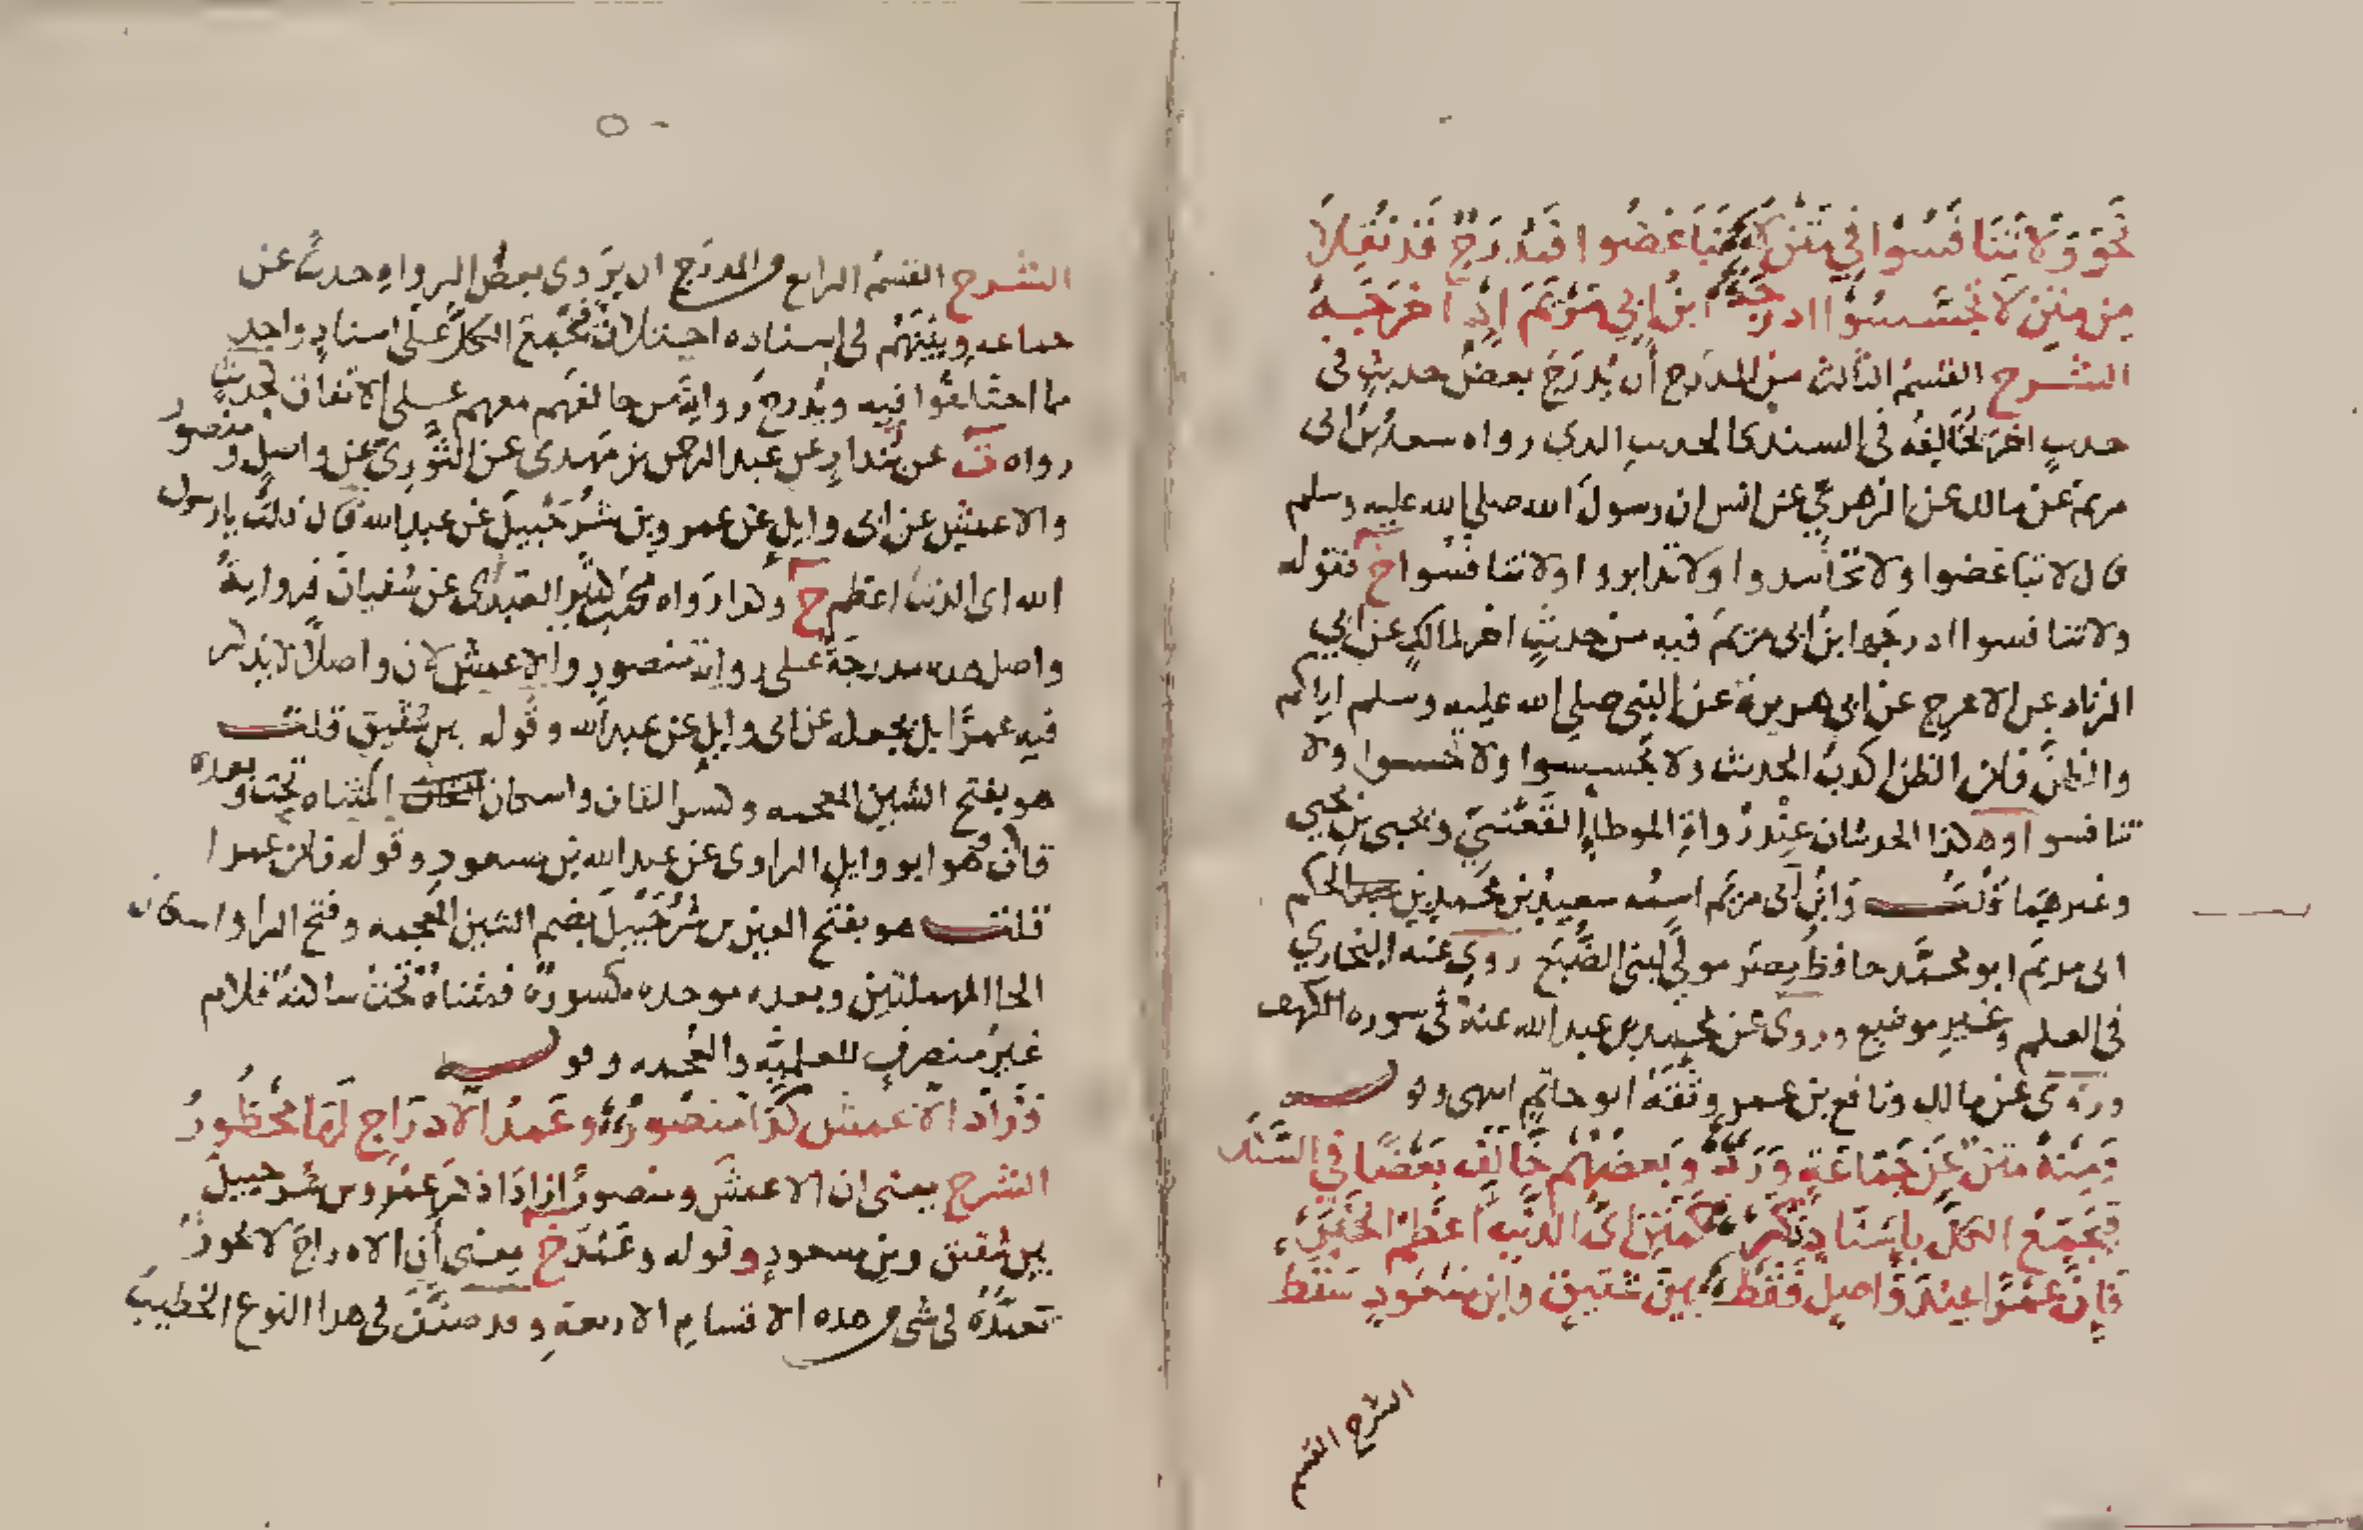 نَحْوَ وَلَا تَنَافَسُوا فِي مَتْنِ لَا تَبَاغَضُوا فَمُدْرَجٌ قَدْ نُقِلَا
مِنْ مَتْنِ لَا تَجَسَّسُوا ادرجَهُ ابْنُ ابِي مَرْيَمَ إِذْ أَخْرَجَهُ
الشرح القسم الثالث من المدرج أن يُدرَجَ بعض حديثٍ في
حديثٍ اخر مخالفه في السند كالحديث الذي رواه سعيد بن ابى
مريم عن مالك عن الزهري عن انس ان رسول الله صلى الله عليه وسلم
قال لا تباغضوا ولا تحاسدوا ولا تدابروا ولا تنافسوا خ فقوله
ولا تنافسوا ادرجها ابن ابى مريم فيه من حديثٍ اخر لمالكٍ عن ابي
الزناد عن الاعرج عن ابى هريرة عن النبي صلى الله عليه وسلم اياكم
والظنَّ فان الظن اكذب الحديث ولا تجسسوا ولا تحسسوا ولا
تنافسوا وهكذا الحديثان عند رواة الموطاءِ القعنبيّ ويحيى بن يحيى
وغيرهما قُلتُ وابن ابى مريم اسمه سعيد بن محمد بن الحكم
ابى مريم ابو محمَّد حافظ بمصر مولى لبنى الضبيع روى عنه البخاري
في العلم وغير موضع وروى عن محمد بن عبد الله عنه في سورة الكهف
وروى عن مالك ونافع بن عمر وثقه ابو حاتم انتهى وقوله
وَمِنْهُ متن عَنْ جَمَاعَةٍ وَرَدْ وبَعضُهُم خَالَفَ بَعْضًا في السَّنَدْ
فَيَجْمَعُ الكلَّ بِإِسْنَادٍ ذَكَرْ كَمَتْنِ ايُّ الذنب اعظم الخَبَرْ
فَإِنَّ عَمْرًا عِنْدَ وَاصِلٍ فَقَطْ بَيْنَ شَقيقٍ وابْنِ مَسْعُودٍ سَقَطْ
الشرح القسم
الشرح القسم الرابع من المدرج ان يروى بعض الرواه حديثا عن
جماعه وبينهم في إسناده اختلاف فيَجْمَعَ الكلَّ على اسنادٍ واحد
مما اختلفوا فيه ويدرج رواية من خالفهم معهم على الاتفاق لحديث
رواه ت عن بُندارٍ عن عبد الرحمن بن مهدى عن الثورى عن واصلٍ ومنصور
والاعمش عن ابى وايلٍ عن عمرو بن شُرَحْبيلَ عن عبد الله قال قلت يا رسول
الله اى الذنب اعظم ح وهكذا رواه محمد بن كثير العبدى عن سفيان فرواية
واصل هذه مدرجة على رواية منصور والاعمش لان واصلًا لا يذكر
فيه عمرًا بل يجعله عن ابى وايلٍ عن عبد الله وقوله بين شقيق قلت
هو بفتح الشين المعجمه وكسر القاف واسكان المثناه تحت وبعده
قاف وهو ابو وايل الراوى عن عبد الله بن مسعود وقوله فان عمرا
قلت هو بفتح العين بن شُرَحْبيلَ بضم الشين المعجمه وفتح الرا واسكان
الحا المهملتين وبعده موحده مكسورة فمثناة تحت ساكنة فلام
غير منصرف للعلمية والعجمه وقوله
وَزَادَ الاعمش كذا منصورُ وعَمْدُ الادراجِ لَهَا محظُورُ
الشرح يعني ان الاعمش ومنصورا زادا ذكر عمرو بن شرحبيل
بين شقيق وبن مسعودٍ وقوله وعَمْدُ خ يعني أن الادراج لا يجوز
تعمّده في شي من هذه الاقسام الاربعة وقد صنَّفَ في هذا النوع الخطيب